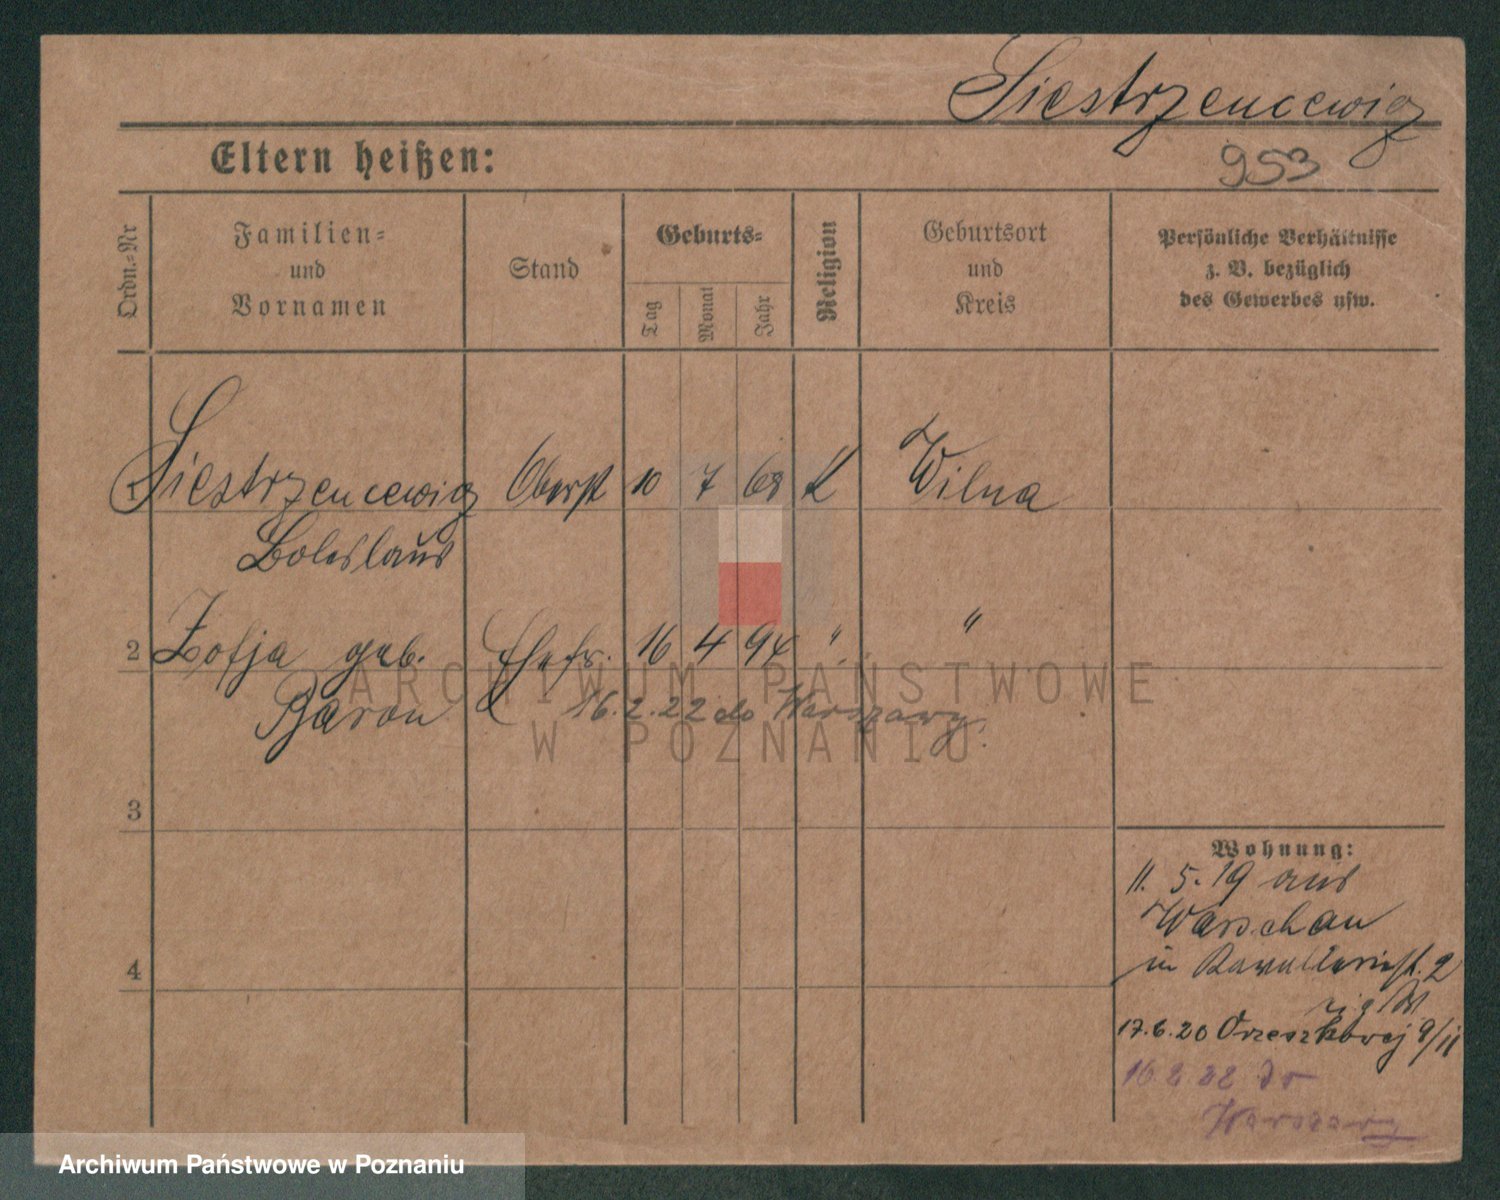 Siestrzencewicz
953
Eltern heißen:
Ordn.-Nr
Familien-
und
Vornamen
Stand
Geburts-
Tag
Monat
Jahr
Religion
Geburtsort
und
Kreis
Persönliche Verhältnisse
z. B. bezüglich
des Gewerbes usw.
1 Siestrzencewicz Oberst 10 7 68 K Wilna
Boleslaus
2 Zofja geb. Ehefr. 16 4 94 " "
Baron 16.2.22 do Warszawy.
3
4
Wohnung:
11. 5. 19 aus
Warschau
in Kavalleriestr. 2
17.6.20 Orzeszkowej 9/11
16 2 22 do
Warszawy
ARCHIWUM PAŃSTWOWE
W POZNANIU
Archiwum Państwowe w Poznaniu